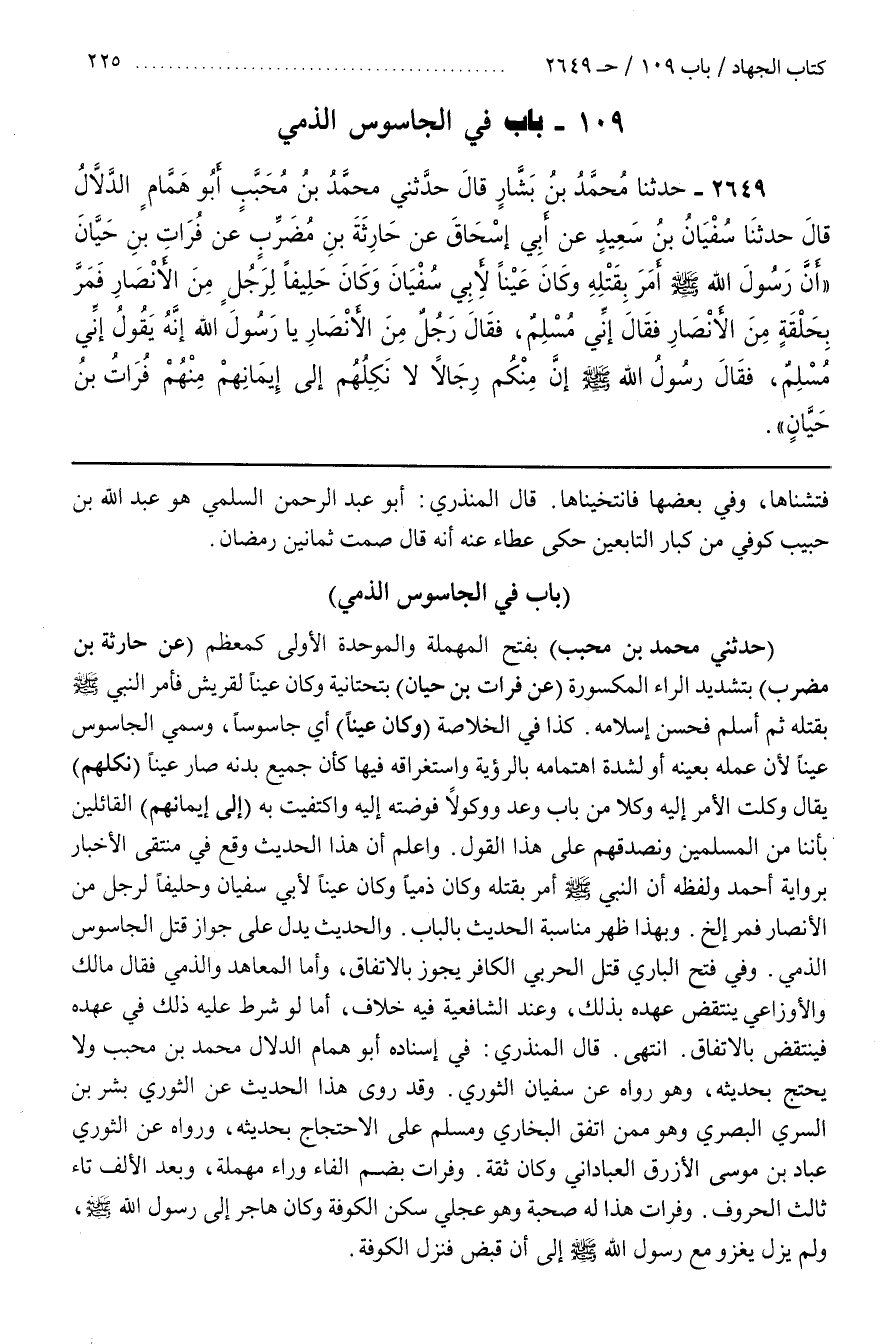 كتاب الجهاد / باب ١٠٩ / حـ ٢٦٤٩ ............................................. ٢٢٥
١٠٩ ـ باب في الجاسوس الذمي
٢٦٤٩ ـ حدثنا مُحمَّدُ بنُ بَشَّارٍ قالَ حدَّثني محمَّدُ بنُ مُحَبَّبٍ أَبُو هَمَّامٍ الدَّلَّالُ
قالَ حدثنَا سُفْيَانُ بنُ سَعِيدٍ عن أَبِي إسْحَاقَ عن حَارِثَةَ بنِ مُضَرِّبٍ عن فُرَاتِ بنِ حَيَّانَ
«أَنَّ رَسُولَ الله ﷺ أَمَرَ بِقَتْلِهِ وكَانَ عَيْناً لأَبِي سُفْيَانَ وَكَانَ حَلِيفاً لِرَجُلٍ مِنَ الأَنْصَارِ فَمَرَّ
بِحَلْقَةٍ مِنَ الأَنْصَارِ فقَالَ إنِّي مُسْلِمٌ، فقَالَ رَجُلٌ مِنَ الأَنْصَارِ يا رَسُولَ الله إنَّهُ يَقُولُ إنِّي
مُسْلِمٌ، فقَالَ رسُولُ الله ﷺ إنَّ مِنْكُم رِجَالًا لا نَكِلُهُم إلى إيمَانِهمْ مِنْهُمْ فُرَاتُ بنُ
حَيَّانٍ».
فتشناها، وفي بعضها فانتخيناها. قال المنذري: أبو عبد الرحمن السلمي هو عبد الله بن
حبيب كوفي من كبار التابعين حكى عطاء عنه أنه قال صمت ثمانين رمضان.
(باب في الجاسوس الذمي)
(حدثني محمد بن محبب) بفتح المهملة والموحدة الأولى كمعظم (عن حارثة بن
مضرب) بتشديد الراء المكسورة (عن فرات بن حيان) بتحتانية وكان عيناً لقريش فأمر النبي ﷺ
بقتله ثم أسلم فحسن إسلامه. كذا في الخلاصة (وكان عيناً) أي جاسوساً، وسمي الجاسوس
عيناً لأن عمله بعينه أو لشدة اهتمامه بالرؤية واستغراقه فيها كأن جميع بدنه صار عيناً (نكلهم)
يقال وكلت الأمر إليه وكلا من باب وعد ووكولًا فوضته إليه واكتفيت به (إلى إيمانهم) القائلين
بأننا من المسلمين ونصدقهم على هذا القول. واعلم أن هذا الحديث وقع في منتقى الأخبار
برواية أحمد ولفظه أن النبي ﷺ أمر بقتله وكان ذمياً وكان عيناً لأبي سفيان وحليفاً لرجل من
الأنصار فمر إلخ. وبهذا ظهر مناسبة الحديث بالباب. والحديث يدل على جواز قتل الجاسوس
الذمي. وفي فتح الباري قتل الحربي الكافر يجوز بالاتفاق، وأما المعاهد والذمي فقال مالك
والأوزاعي ينتقض عهده بذلك، وعند الشافعية فيه خلاف، أما لو شرط عليه ذلك في عهده
فينتقض بالاتفاق. انتهى. قال المنذري: في إسناده أبو همام الدلال محمد بن محبب ولا
يحتج بحديثه، وهو رواه عن سفيان الثوري. وقد روى هذا الحديث عن الثوري بشر بن
السري البصري وهو ممن اتفق البخاري ومسلم على الاحتجاج بحديثه، ورواه عن الثوري
عباد بن موسى الأزرق العباداني وكان ثقة. وفرات بضم الفاء وراء مهملة، وبعد الألف تاء
ثالث الحروف. وفرات هذا له صحبة وهو عجلي سكن الكوفة وكان هاجر إلى رسول الله ﷺ،
ولم يزل يغزو مع رسول الله ﷺ إلى أن قبض فنزل الكوفة.